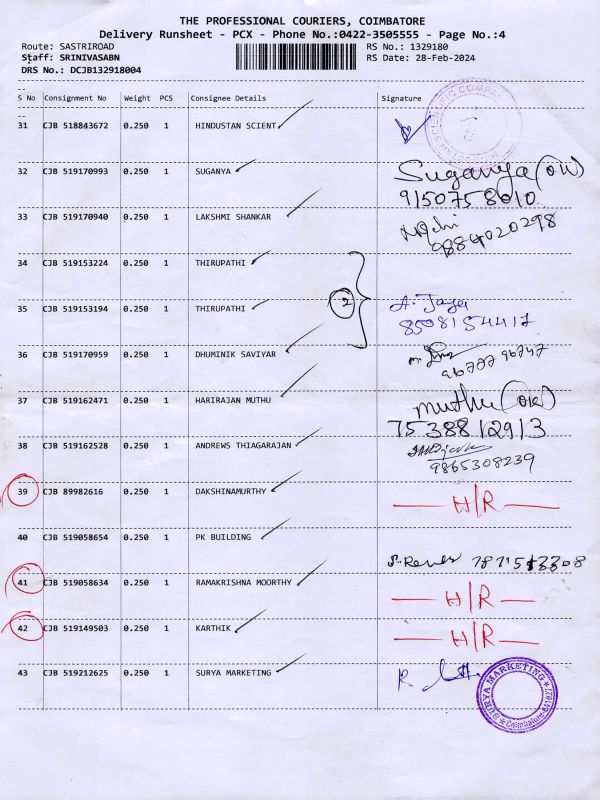 THE PROFESSIONAL COURIERS, COIMBATORE
Delivery Runsheet - PCX - Phone No.:0422-3505555 - Page No.:4
Route: SASTRIROAD RS No.: 1329180
Staff: SRINIVASABN RS Date: 28-Feb-2024
DRS No.: DCJB132918004
--
S No Consignment No Weight PCS Consignee Details Signature
--
31 CJB 518843672 0.250 1 HINDUSTAN SCIENT
32 CJB 519170993 0.250 1 SUGANYA Suganya (ow)
9150758610
33 CJB 519170940 0.250 1 LAKSHMI SHANKAR
9884020298
34 CJB 519153224 0.250 1 THIRUPATHI
2
35 CJB 519153194 0.250 1 THIRUPATHI A. Jaya
8508154417
36 CJB 519170959 0.250 1 DHUMINIK SAVIYAR
96777 96747
37 CJB 519162471 0.250 1 HARIRAJAN MUTHU muthu
7538812913
38 CJB 519162528 0.250 1 ANDREWS THIAGARAJAN
9865308239
39 CJB 89982616 0.250 1 DAKSHINAMURTHY H/R
40 CJB 519058654 0.250 1 PK BUILDING
41 CJB 519058634 0.250 1 RAMAKRISHNA MOORTHY H/R
42 CJB 519149503 0.250 1 KARTHIK H/R
43 CJB 519212625 0.250 1 SURYA MARKETING R.
SURYA MARKETING
Coimbatore